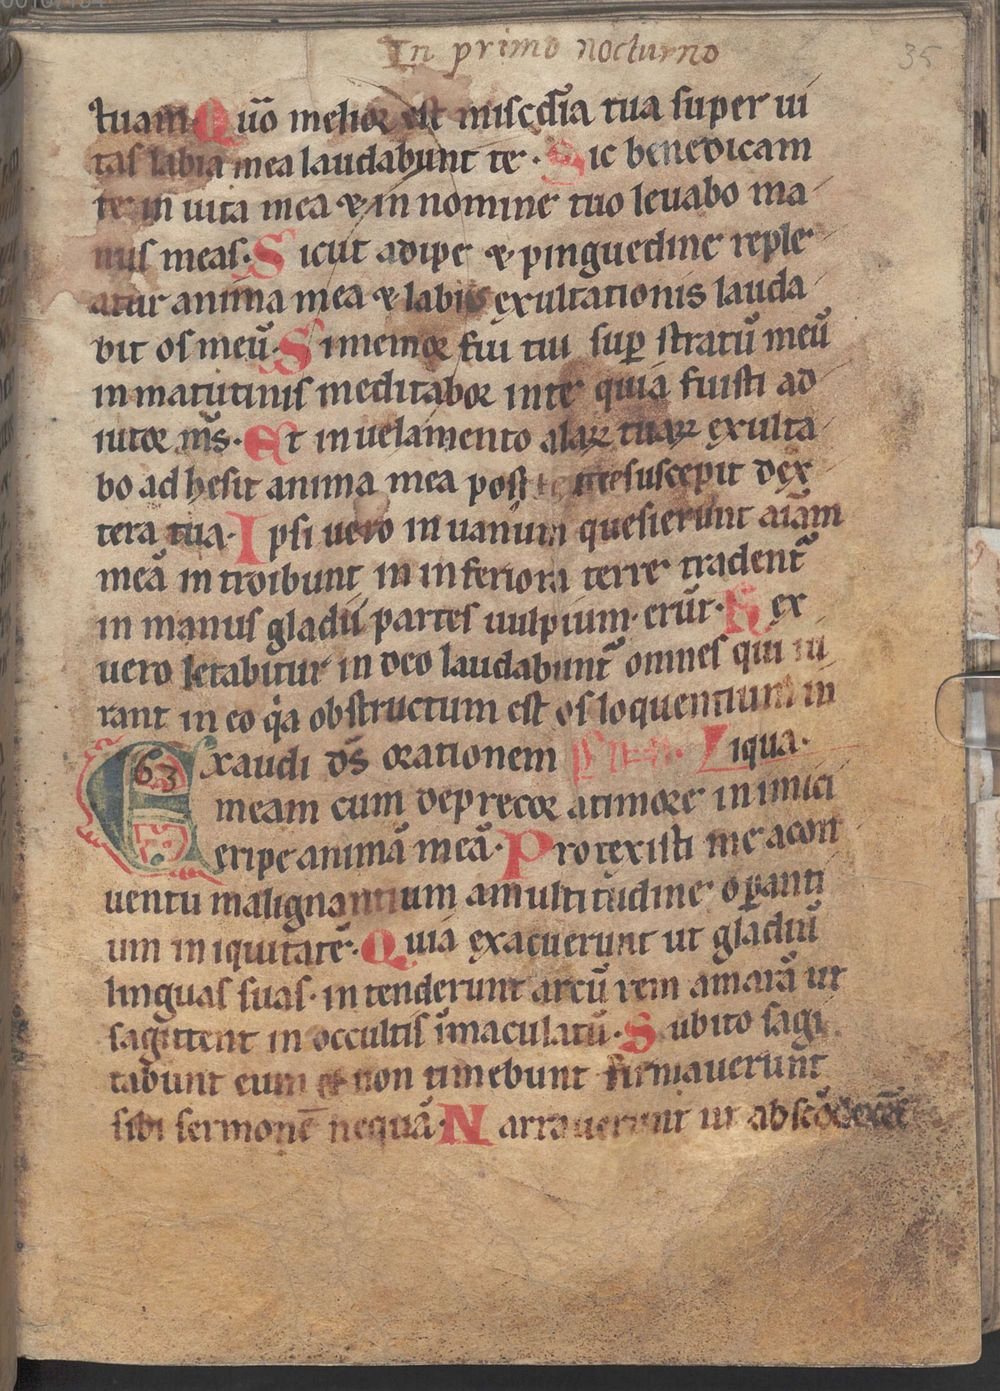 In primo nocturno
35
tuam. Quō melior est misc̄dīa tua super ui
tas labia mea laudabunt te. Sic benedicam
te in uita mea & in nomine tuo leuabo ma
nus meas. Sicut adipe & pinguedine reple
atur anima mea & labiis exultationis lauda
bit os meū. Si memor fui tui suꝑ stratū meū
in matutinis meditabor in te quia fuisti ad
iutor ms̄. Et in uelamento alaꝝ tuaꝝ exulta
bo adhesit anima mea post te me suscepit dex
tera tua. Ipsi uero in uanum quesierunt aīam
meā introibunt in inferiora terre tradent᷑
in manus gladii partes uulpium erūt. Rex
uero letabitur in deo laudabunt᷑ omnes qui iu
rant in eo qͥa obstructum est os loquentium in
Exaudi ds̄ orationem iqua.
63
meam cum deprecor a timore inimici
eripe animā meā. Protexisti me a con
uentu malignantium a multitudine oꝑanti
um iniquitatē. Quia exacuerunt ut gladiū
linguas suas. intenderunt arcū rem amarā ut
sagittent in occultis īmaculatū. Subito sagi
tabunt eum et non timebunt firmauerunt
sibi sermonē nequā. Narrauerunt ut abscōderēt